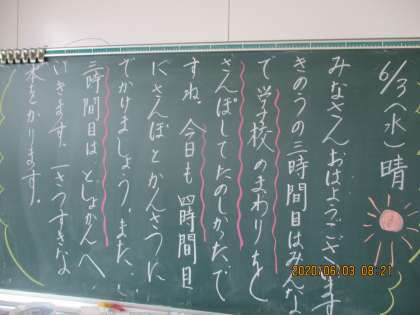 6/3(水)晴
みなさん おはようございます
きのうの三時間目はみんな
で学校のまわりをし
さんぽしてたのしかったで
すね。今日も四時間目
にさんぽとかんさつに
でかけましょう。また、
三時間目は としょかんへ
いきます。一さつすきな
本をかります。
2020/06/03 08:21